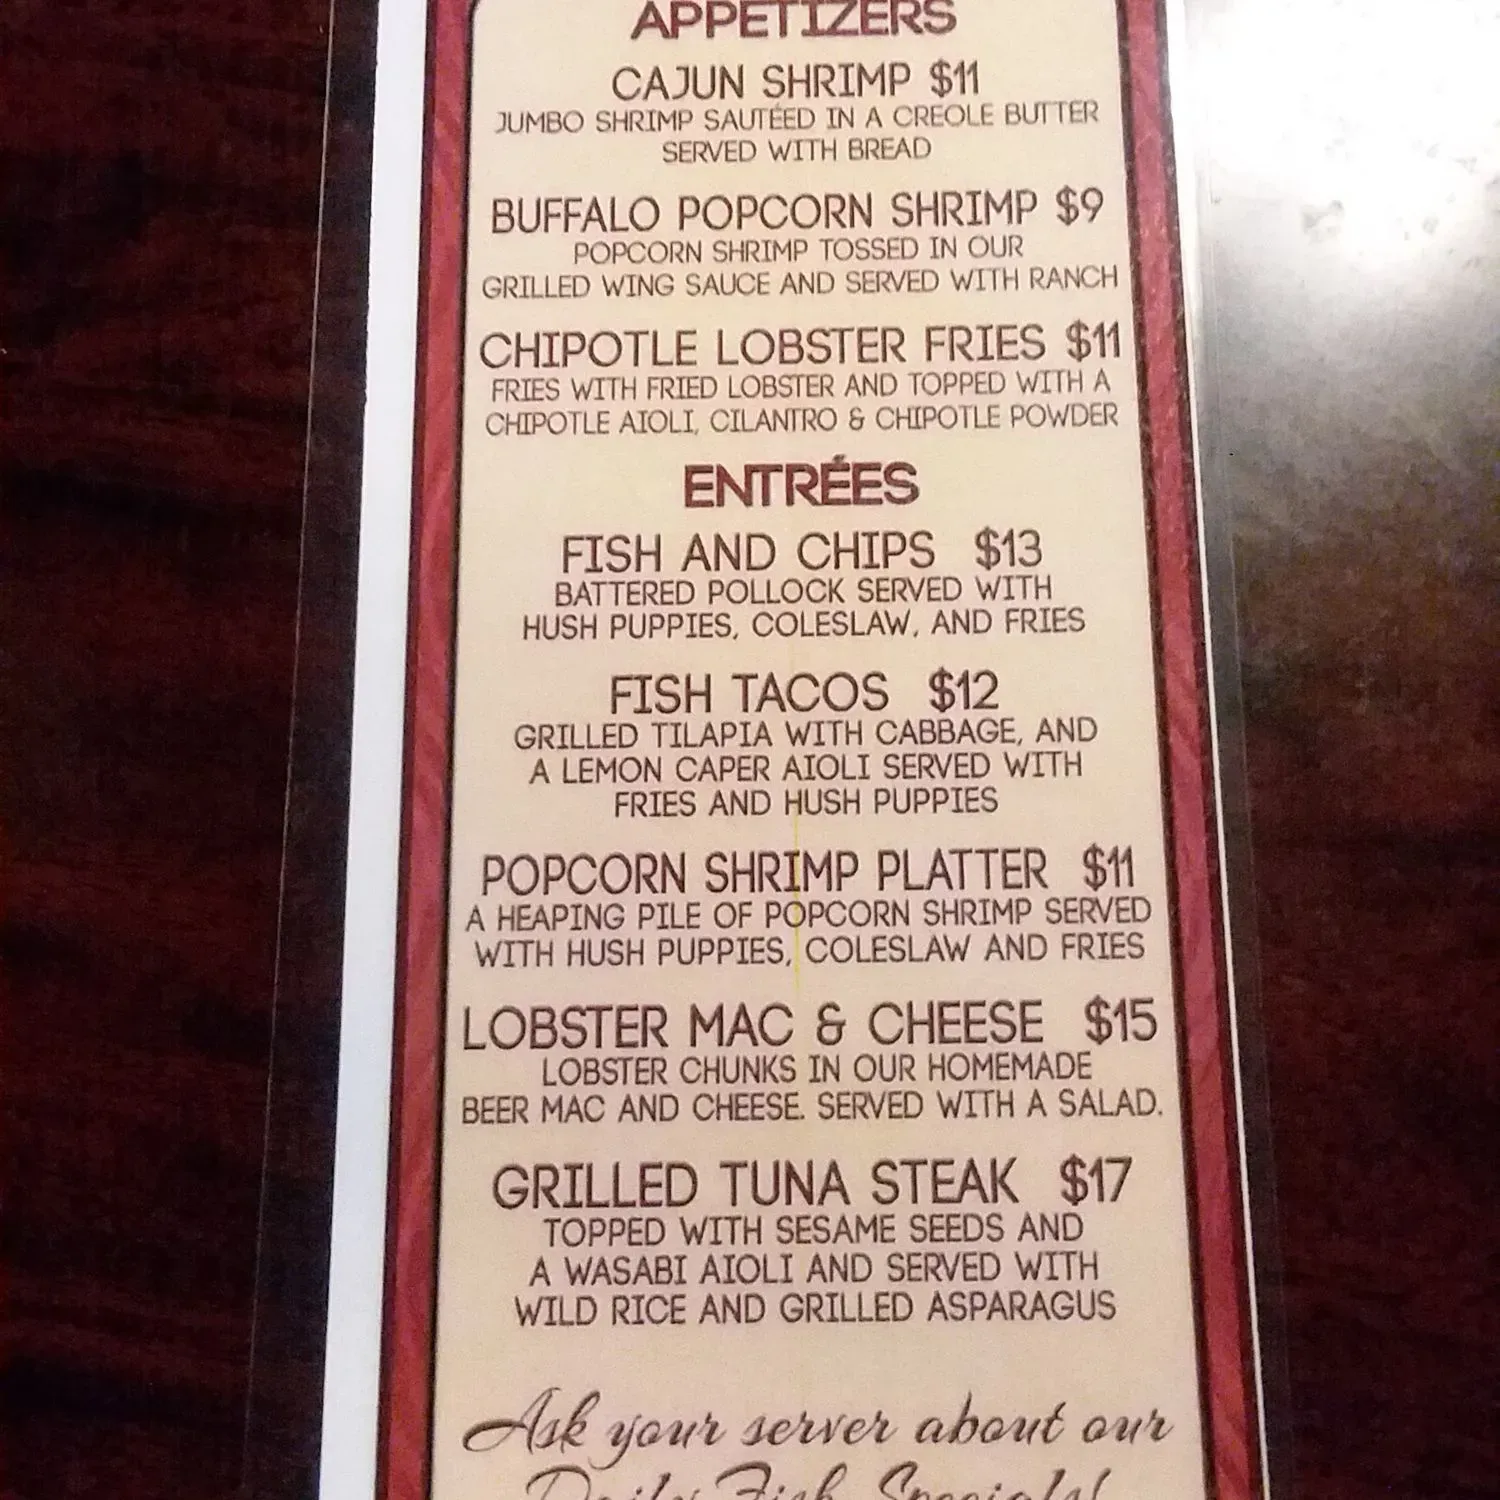 APPETIZERS
CAJUN SHRIMP $11
JUMBO SHRIMP SAUTÉED IN A CREOLE BUTTER
SERVED WITH BREAD
BUFFALO POPCORN SHRIMP $9
POPCORN SHRIMP TOSSED IN OUR
GRILLED WING SAUCE AND SERVED WITH RANCH
CHIPOTLE LOBSTER FRIES $11
FRIES WITH FRIED LOBSTER AND TOPPED WITH A
CHIPOTLE AIOLI, CILANTRO & CHIPOTLE POWDER
ENTRÉES
FISH AND CHIPS $13
BATTERED POLLOCK SERVED WITH
HUSH PUPPIES, COLESLAW, AND FRIES
FISH TACOS $12
GRILLED TILAPIA WITH CABBAGE, AND
A LEMON CAPER AIOLI SERVED WITH
FRIES AND HUSH PUPPIES
POPCORN SHRIMP PLATTER $11
A HEAPING PILE OF POPCORN SHRIMP SERVED
WITH HUSH PUPPIES, COLESLAW AND FRIES
LOBSTER MAC & CHEESE $15
LOBSTER CHUNKS IN OUR HOMEMADE
BEER MAC AND CHEESE. SERVED WITH A SALAD.
GRILLED TUNA STEAK $17
TOPPED WITH SESAME SEEDS AND
A WASABI AIOLI AND SERVED WITH
WILD RICE AND GRILLED ASPARAGUS
Ask your server about our
Daily Fish Specials!